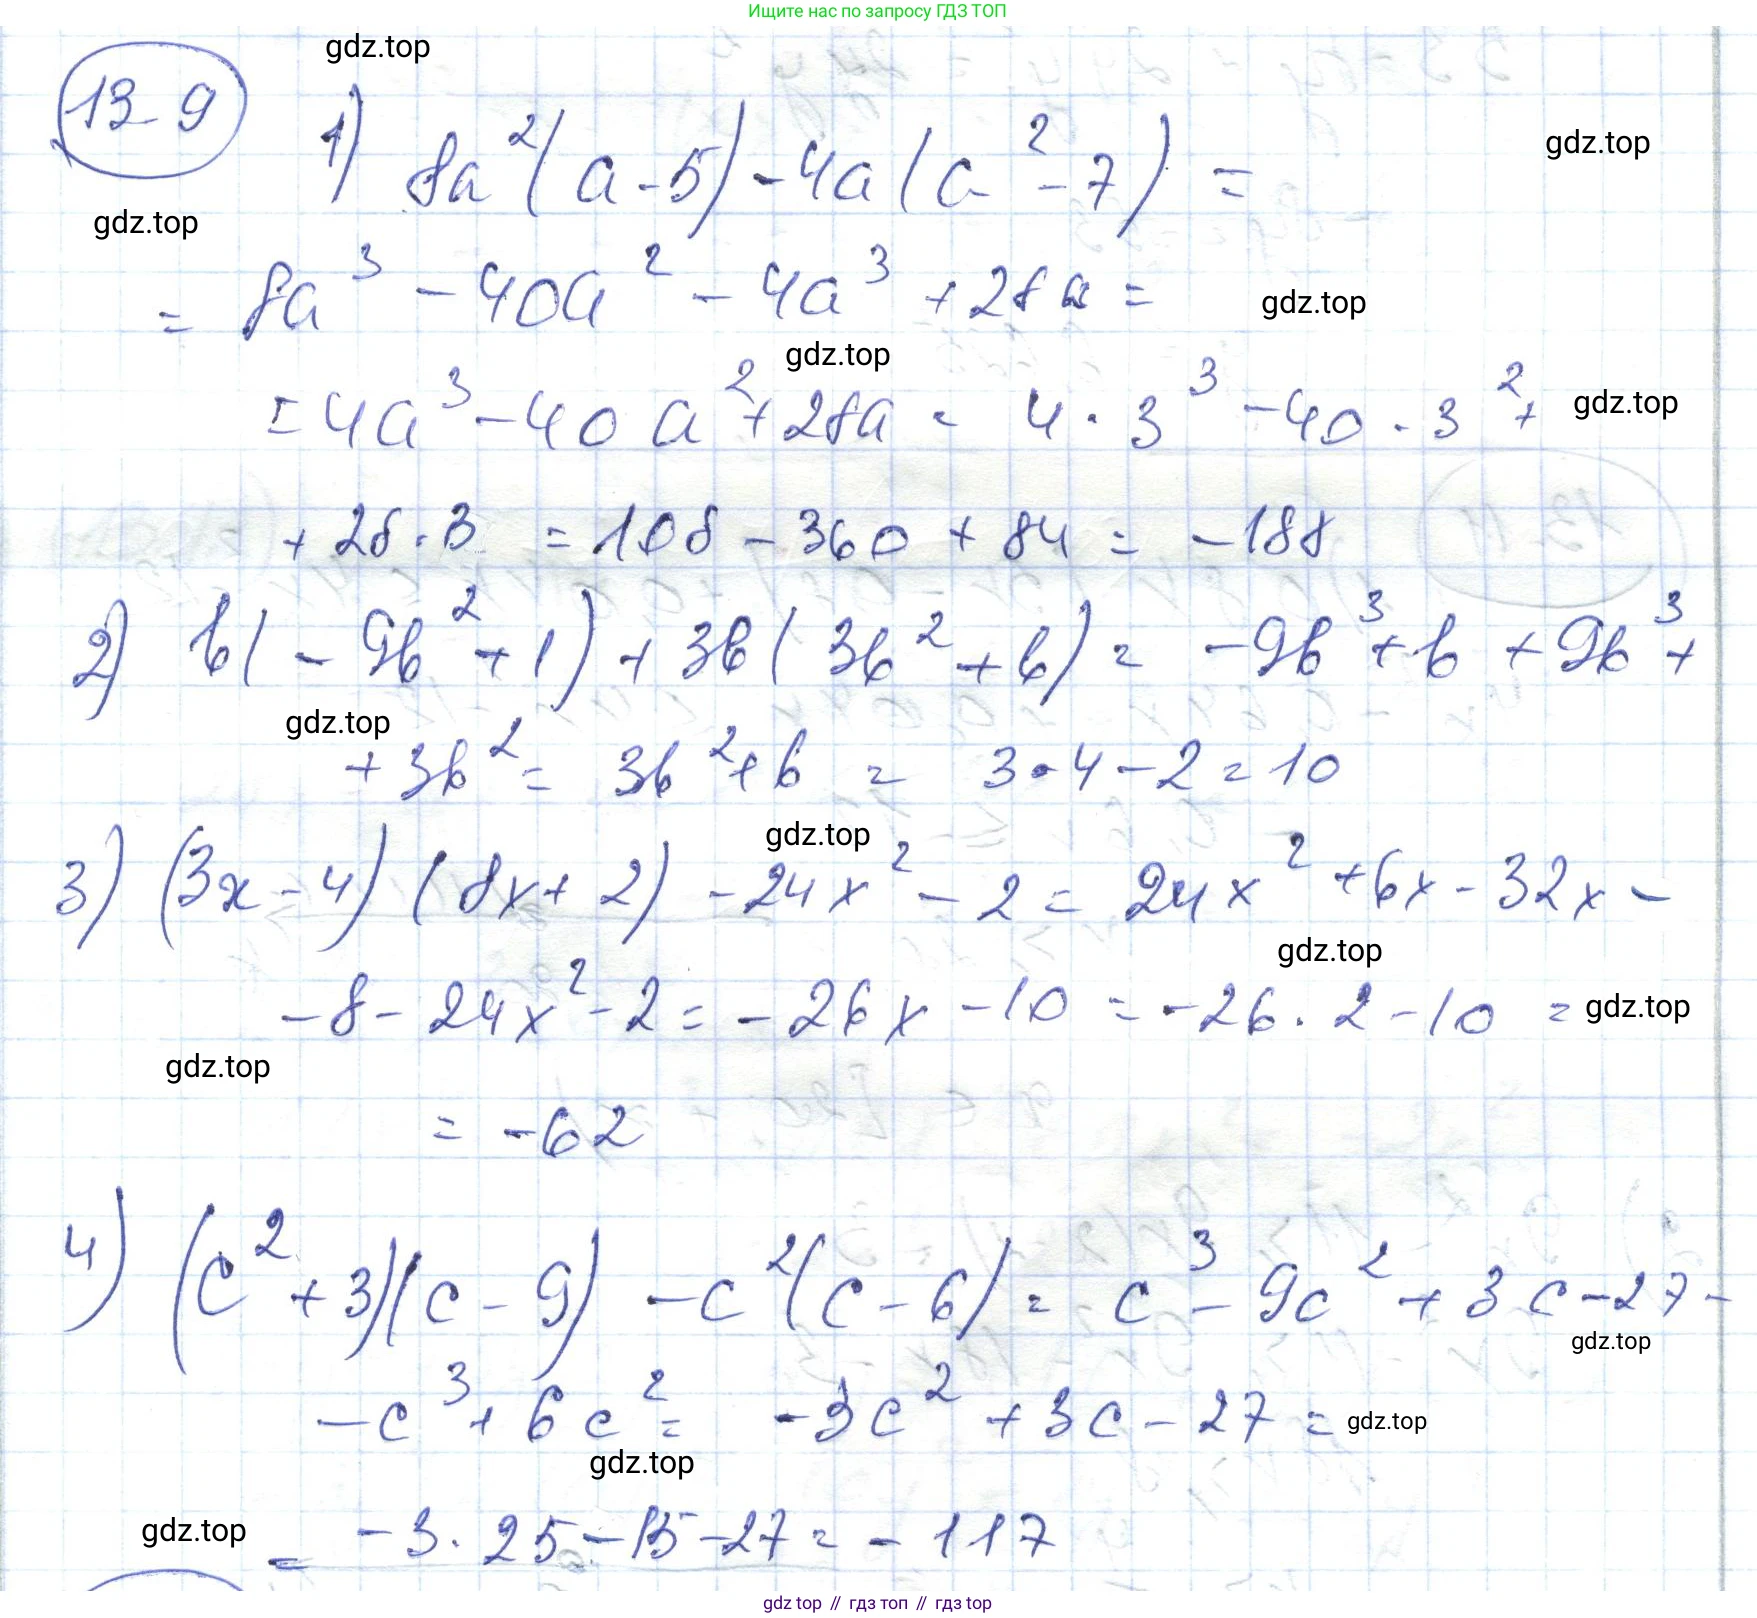 Ищите нас по запросу ГДЗ ТОП
gdz.top
13 9
1) 8a²(a-5)-4a(a²-7)=
gdz.top
gdz.top
= 8a³-40a²-4a³+28a=
gdz.top
gdz.top
=4a³-40a²+28a= 4·3³-40·3²+
gdz.top
+28·3=108-360+84=-188
2) b(-9b²+1)+3b(3b²+b)=-9b³+b+9b³+
gdz.top
+3b²=3b²+b=3·4-2=10
gdz.top
3) (3x-4)(8x+2)-24x²-2=24x²+6x-32x-
gdz.top
-8-24x²-2=-26x-10=-26·2-10=
gdz.top
gdz.top
=-62
4) (c²+3)(c-9)-c²(c-6)=c³-9c²+3c-27-
gdz.top
-c³+6c²=-3c²+3c-27=
gdz.top
gdz.top
gdz.top
=-3·25-15-27=-117
gdz top // гдз топ // gdz top